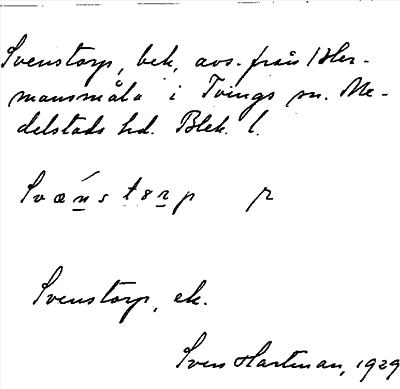 Svenstorp, bek, avs. från 1 Her-
mansmåla i Tvings sn. Me-
delstads hd. Blek. l.
Svænstorp r
Svenstorp, ek.
Sven Hartman, 1929